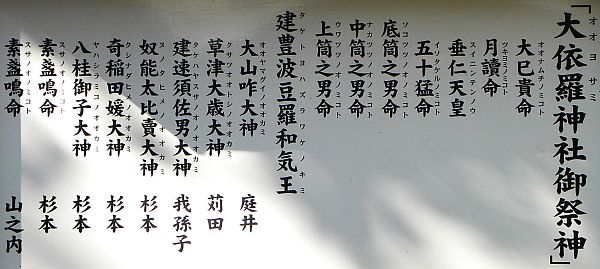 「大依羅神社御祭神」
オオヨサミ
大已貴命
オオナムチノミコト
月讀命
ツキヨミノミコト
垂仁天皇
スイニンテンノウ
五十猛命
イソタケルノミコト
底筒之男命
ソコツツノオノミコト
中筒之男命
ナカツツノオノミコト
上筒之男命
ウワツツノオノミコト
建豊波豆羅和気王
タケトヨハズラワケノキミ
大山咋大神 庭井
オオヤマグイノオオカミ
草津大歳大神 苅田
クサツオオトシノオオカミ
建速須佐男大神 我孫子
タケハヤスサノオノオオカミ
奴能太比賣大神 杉本
ヌノタヒメノオオカミ
奇稲田媛大神 杉本
クシナダヒメノオオカミ
八柱御子大神 杉本
ヤハシラミコノオオカミ
素盞鳴命 杉本
スサノオノミコト
素盞鳴命 山之内
スサノオノミコト